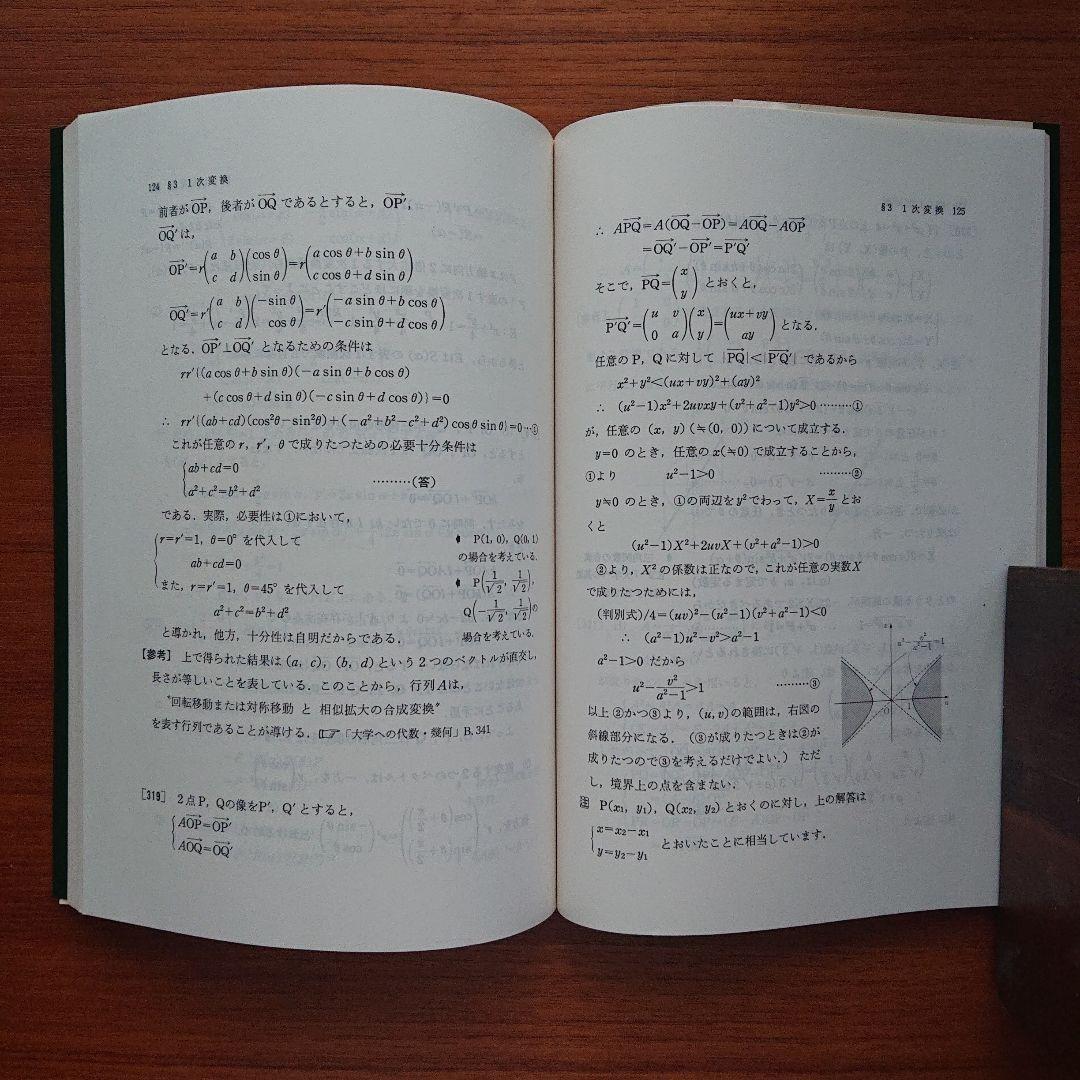 124 §3 1次変換
前者が$\overrightarrow{OP}$, 後者が$\overrightarrow{OQ}$であるとすると, $\overrightarrow{OP'}$,
$\overrightarrow{OQ'}$は,
$\overrightarrow{OP'}=r\begin{pmatrix}a & b\\c & d\end{pmatrix}\begin{pmatrix}\cos\theta\\\sin\theta\end{pmatrix}=r\begin{pmatrix}a\cos\theta+b\sin\theta\\c\cos\theta+d\sin\theta\end{pmatrix}$
$\overrightarrow{OQ'}=r'\begin{pmatrix}a & b\\c & d\end{pmatrix}\begin{pmatrix}-\sin\theta\\\cos\theta\end{pmatrix}=r'\begin{pmatrix}-a\sin\theta+b\cos\theta\\-c\sin\theta+d\cos\theta\end{pmatrix}$
となる. $\overrightarrow{OP'}\perp\overrightarrow{OQ'}$ となるための条件は
rr'{(a cosθ+b sinθ)(−a sinθ+b cosθ)
+(c cosθ+d sinθ)(−c sinθ+d cosθ)}=0
∴ rr'{(ab+cd)(cos²θ−sin²θ)+(−a²+b²−c²+d²)cosθ sinθ}=0…①
これが任意の r, r', θ で成りたつための必要十分条件は
ab+cd=0
a²+c²=b²+d² ………(答)
である. 実際, 必要性は①において,
r=r'=1, θ=0° を代入して
ab+cd=0
また, r=r'=1, θ=45° を代入して
a²+c²=b²+d²
P(1, 0), Q(0, 1)
の場合を考えている.
P$\left(\frac{1}{\sqrt{2}}, \frac{1}{\sqrt{2}}\right)$,
Q$\left(-\frac{1}{\sqrt{2}}, \frac{1}{\sqrt{2}}\right)$の
場合を考えている.
と導かれ, 他方, 十分性は自明だからである.
【参考】 上で得られた結果は (a, c), (b, d) という2つのベクトルが直交し,
長さが等しいことを表している. このことから, 行列Aは,
〝回転移動または対称移動 と 相似拡大の合成変換〟
を表す行列であることが導ける. ☞「大学への代数・幾何」B. 341
[319] 2点P, Qの像をP', Q' とすると,
$A\overrightarrow{OP}=\overrightarrow{OP'}$
$A\overrightarrow{OQ}=\overrightarrow{OQ'}$
§3 1次変換 125
∴ $A\overrightarrow{PQ}=A(\overrightarrow{OQ}-\overrightarrow{OP})=A\overrightarrow{OQ}-A\overrightarrow{OP}$
$=\overrightarrow{OQ'}-\overrightarrow{OP'}=\overrightarrow{P'Q'}$
そこで, $\overrightarrow{PQ}=\begin{pmatrix}x\\y\end{pmatrix}$ とおくと,
$\overrightarrow{P'Q'}=\begin{pmatrix}u & v\\0 & a\end{pmatrix}\begin{pmatrix}x\\y\end{pmatrix}=\begin{pmatrix}ux+vy\\ay\end{pmatrix}$ となる.
任意の P, Q に対して $|\overrightarrow{PQ}|<|\overrightarrow{P'Q'}|$ であるから
x²+y²<(ux+vy)²+(ay)²
∴ (u²−1)x²+2uvxy+(v²+a²−1)y²>0 ………①
が, 任意の (x, y) (≒(0, 0)) について成立する.
y=0 のとき, 任意の x(≒0) で成立することから,
①より u²−1>0 ………②
y≒0 のとき, ①の両辺をy²でわって, $X=\frac{x}{y}$とお
くと
(u²−1)X²+2uvX+(v²+a²−1)>0
②より, X² の係数は正なので, これが任意の実数X
で成りたつためには,
(判別式)/4=(uv)²−(u²−1)(v²+a²−1)<0
∴ (a²−1)u²−v²>a²−1
a²−1>0 だから
$u^2-\frac{v^2}{a^2-1}>1$ ………③
以上 ②かつ③より, (u, v)の範囲は, 右図の
斜線部分になる. (③が成りたつときは②が
成りたつので③を考えるだけでよい.) ただ
し, 境界上の点を含まない.
$u^2-\frac{v^2}{a^2-1}=1$
O
1
注 P(x₁, y₁), Q(x₂, y₂) とおくのに対し, 上の解答は
x=x₂−x₁
y=y₂−y₁ とおいたことに相当しています.